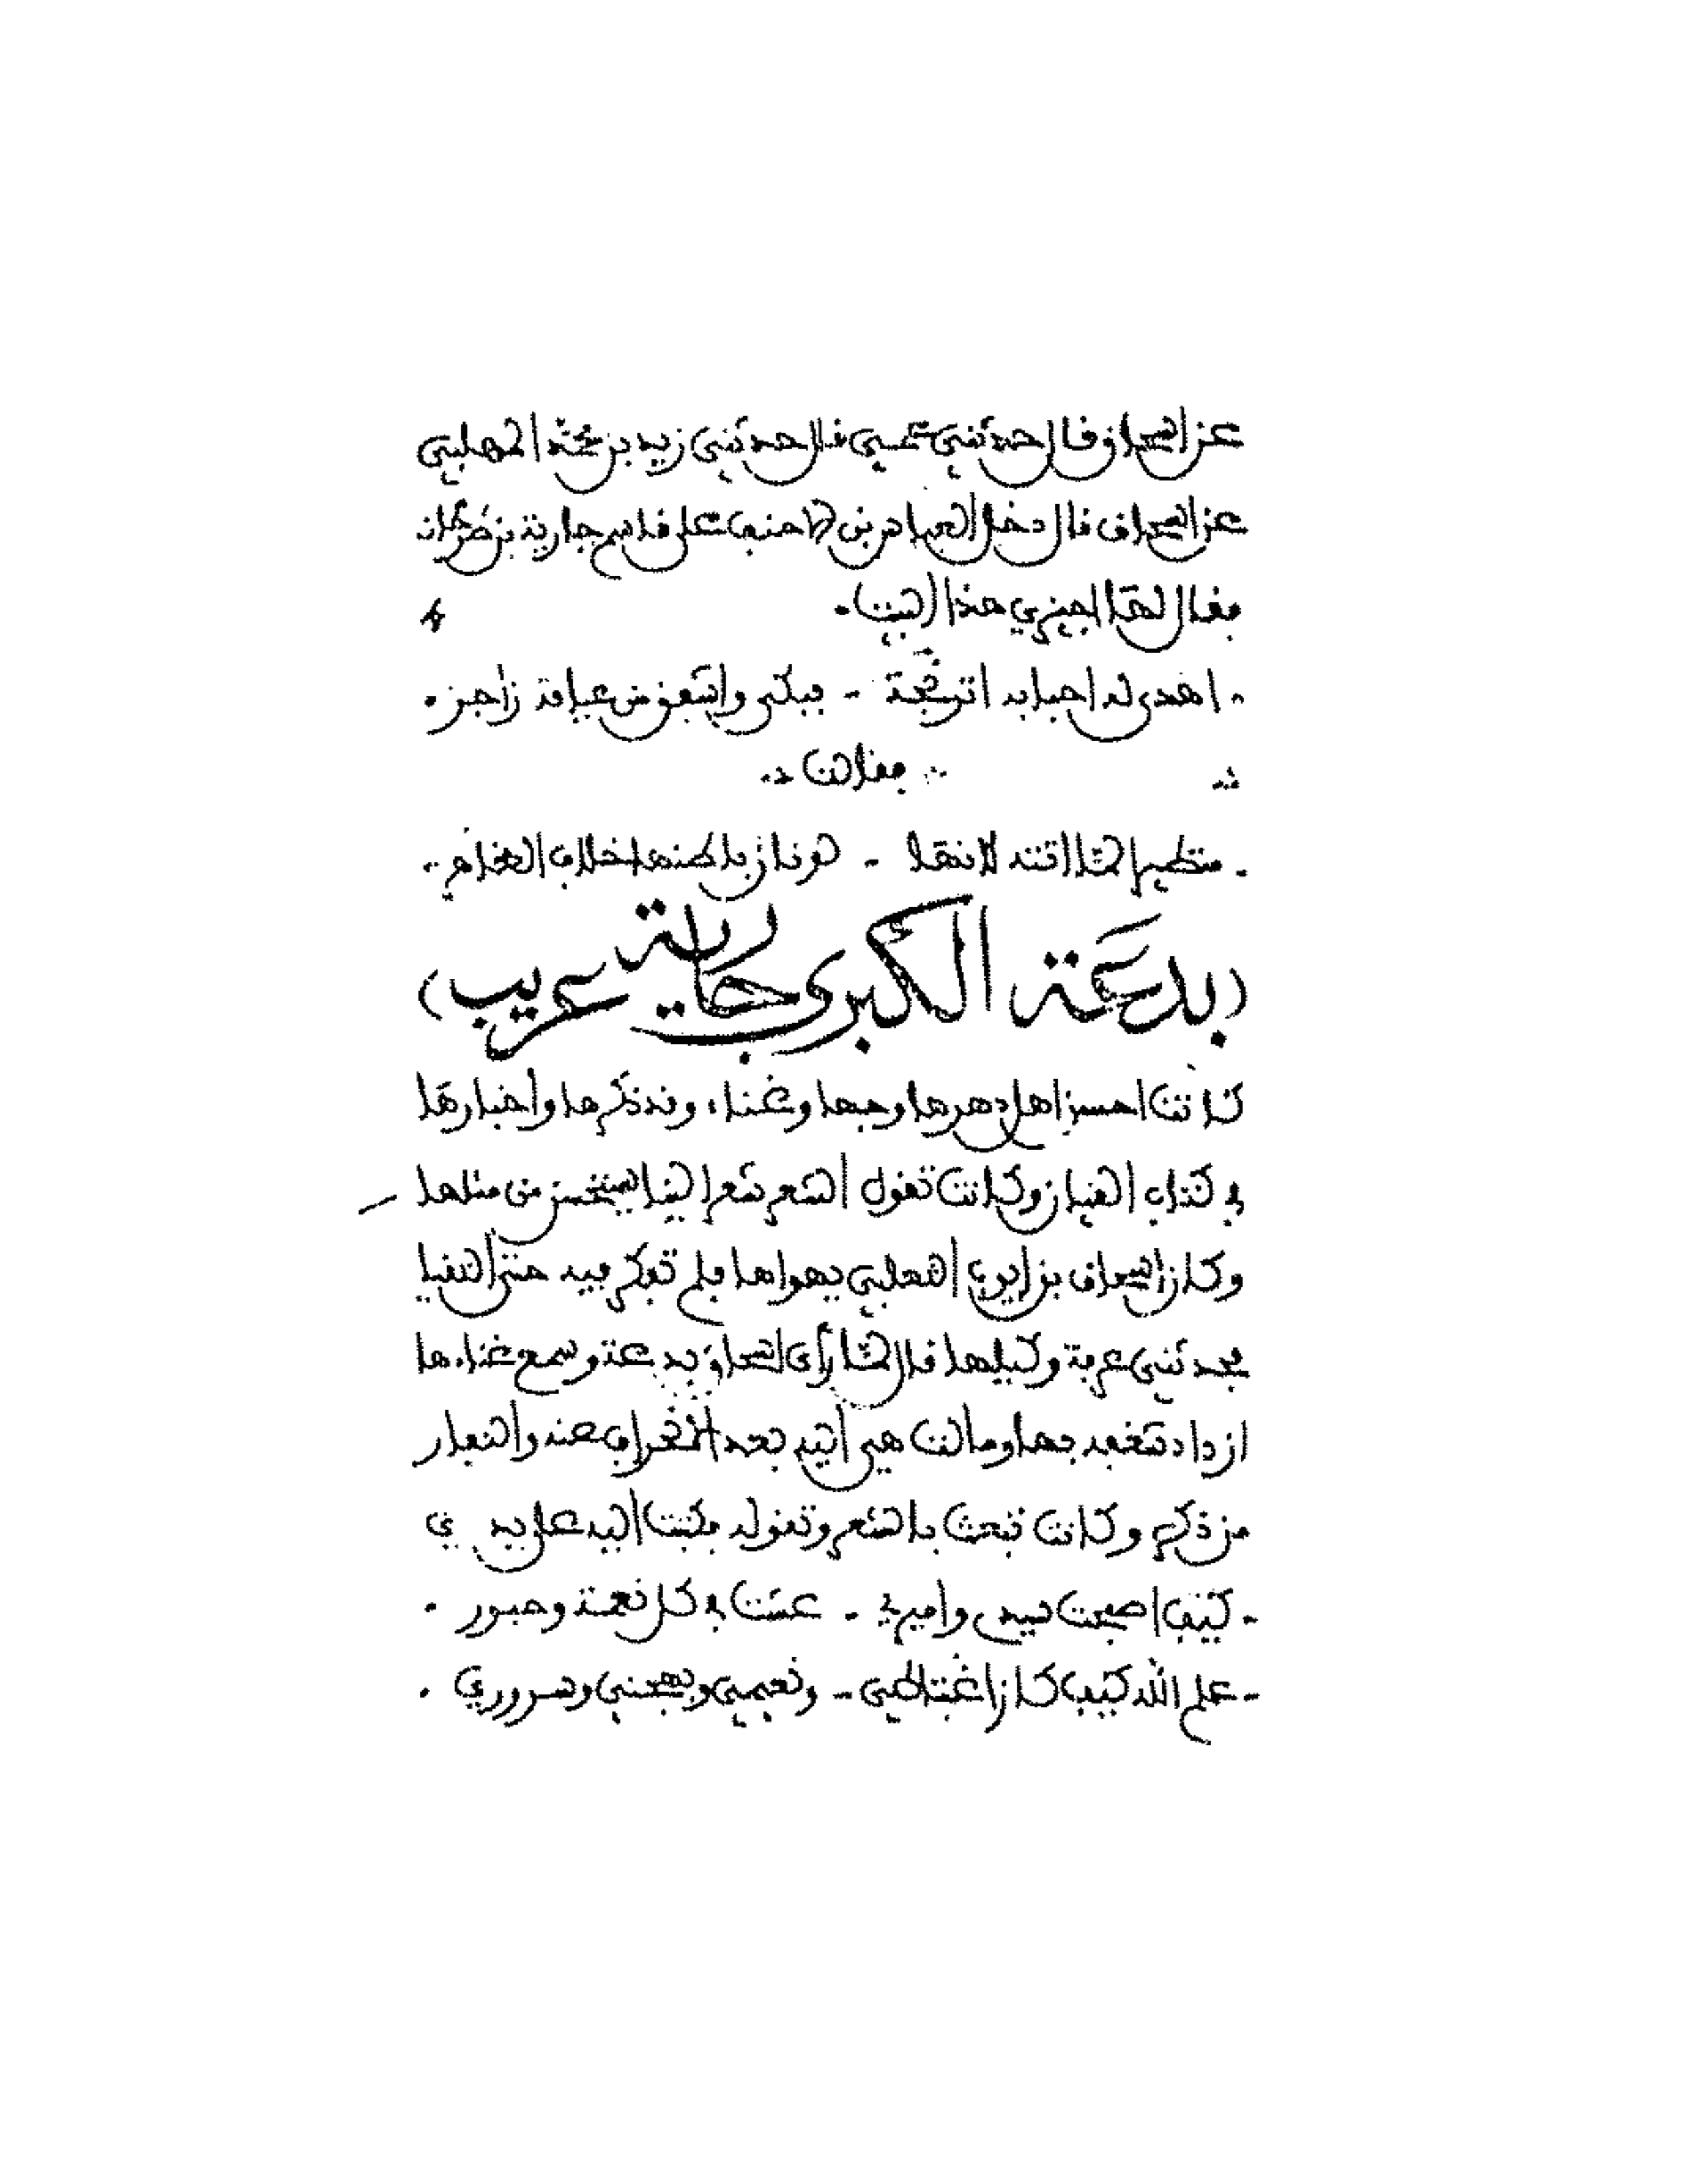 عن اسحاق قال حدثني عمي قال حدثني زيد بن محمد المهلبي
عن اسحاق قال دخل العباس بن الاحنف على قاسم جارية بن طرخان
فقال لها اجيزي هذا البيت.
. اهدى له احبابه اترجة - فبكى واشفق من عيافة زاجر.
فقالت
. متطيرا لما اتته لانها - لونان باطنها خلاف الظاهر
(بدعة الكبرى جارية عريب)
كانت احسن اهل دهرها وجها وغناء، ونذكرها واخبارها
في كتاب القيان وكانت تقول الشعر شعرا لينا يستحسن من مثلها
وكان اسحاق بن ايوب الثعلبي يهواها فلم تفكر فيه حتى التقيا
فحدثني عربة وكيلها قال لما رأى اسحاق بدعة وسمع غناءها
ازداد شغفه بها ومالت هي اليه بعد انحراف عنه والنفار
من ذكره وكانت تبعث بالشعر وتقوله فكتبت اليه على يدي
. كيف اصبحت سيدي واميري . عشت في كل نعمة وحبور .
- علم الله كيف كان اغتباطي - ونعيمي وبهجتي وسروري .